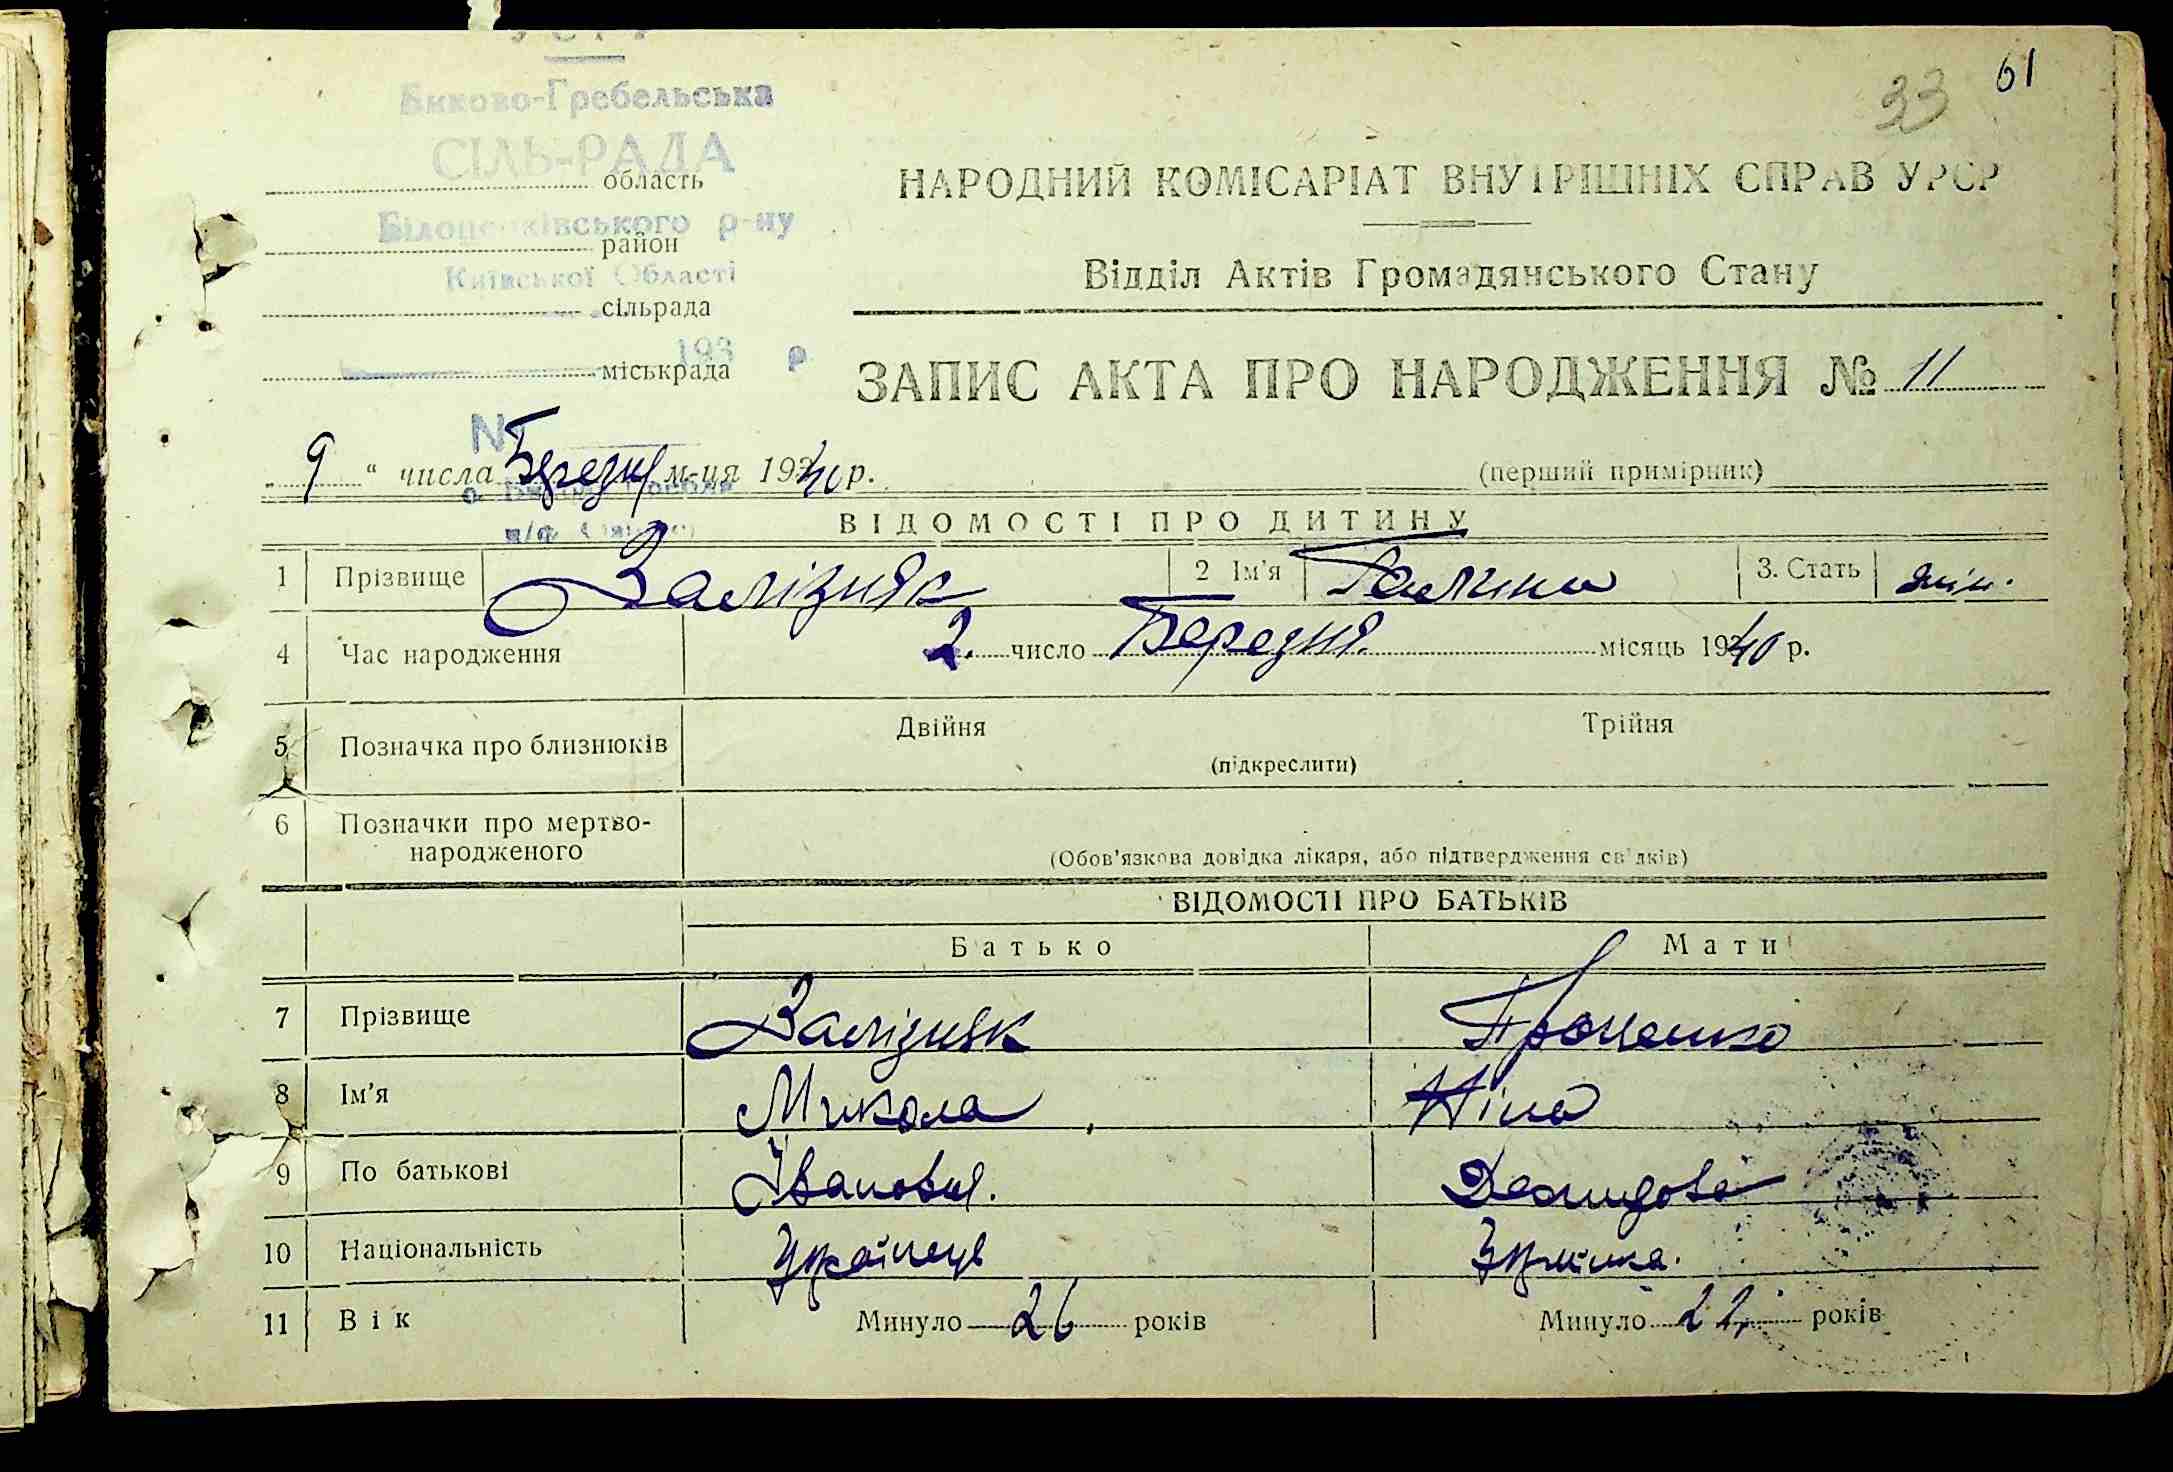 УСРР
Биково-Гребельська
СІЛЬ-РАДА
область
Білоцерківського р-ну
район
Київської Області
сільрада
193 р.
міськрада
33 61
НАРОДНИЙ КОМІСАРІАТ ВНУТРІШНІХ СПРАВ УРСР
Відділ Актів Громадянського Стану
ЗАПИС АКТА ПРО НАРОДЖЕННЯ № 11
№
9 " числа Березня м-ця 1940 р.
(перший примірник)
ВІДОМОСТІ ПРО ДИТИНУ
1 Прізвище Залізняк 2 Ім'я Галина 3. Стать жін.
4 Час народження 2. число Березня. місяць 1940 р.
5 Позначка про близнюків Двійня Трійня
(підкреслити)
6 Позначки про мертво-
народженого
(Обов'язкова довідка лікаря, або підтвердження свідків)
ВІДОМОСТІ ПРО БАТЬКІВ
Батько Мати
7 Прізвище Залізняк
8 Ім'я Микола Ніна
9 По батькові Іванович. Демидова
10 Національність Українець Українка.
11 Вік Минуло 26 років Минуло 22 років